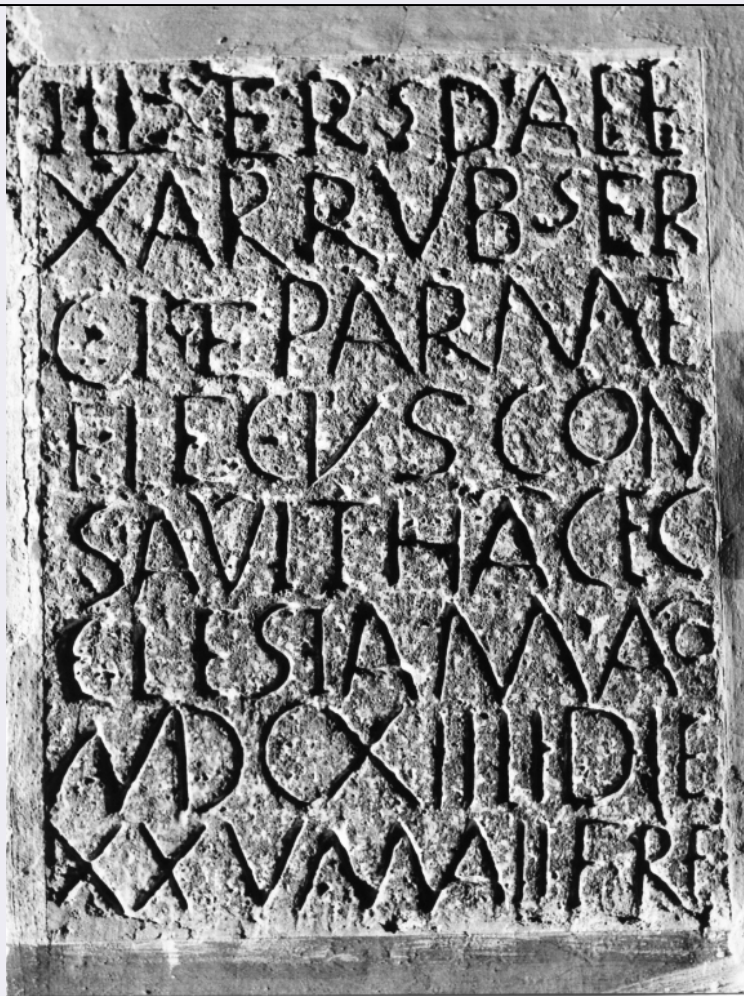 ERSDALE
XARRVBSER
CIEPARME
FIECVSCON
SAVITHACEC
CLESIAMAO
MDCXIIIIDIE
XXVMAIIFRE